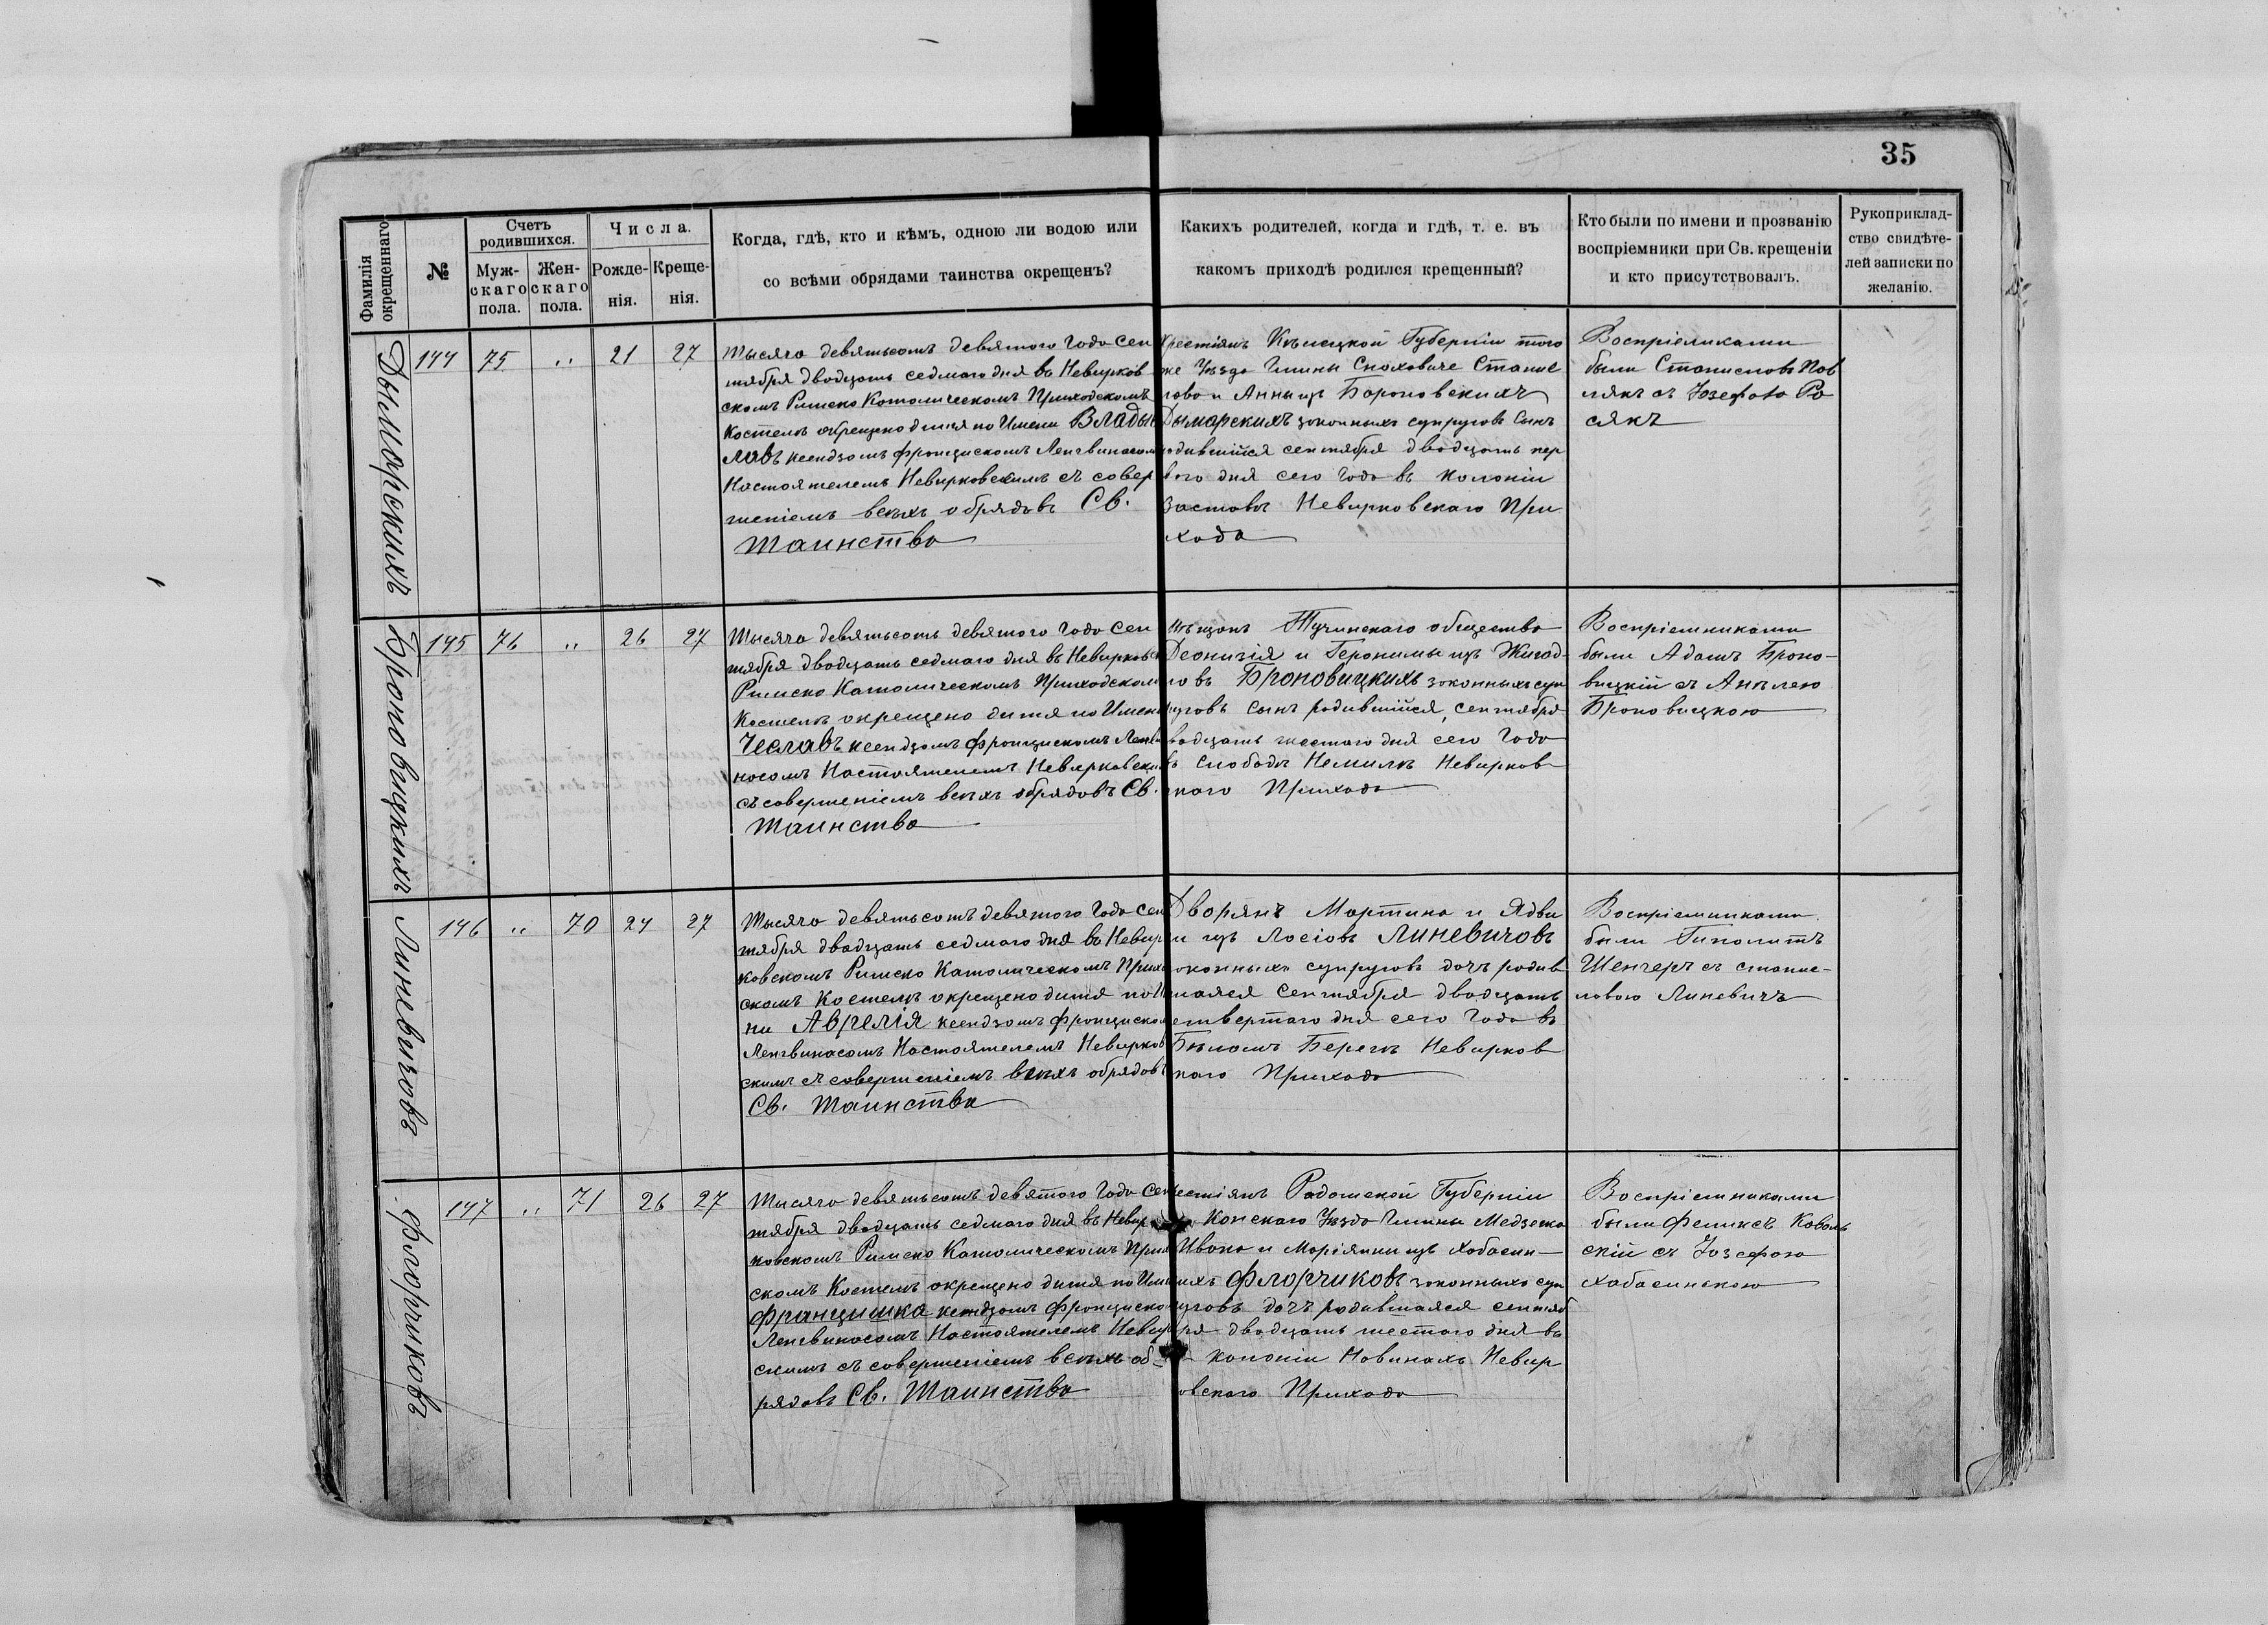 35
Фамилія окрещеннаго
№
Счетъ родившихся.
Мужскаго пола.
Женскаго пола.
Числа.
Рожденія.
Крещенія.
Когда, гдѣ, кто и кѣмъ, одною ли водою или
со всѣми обрядами таинства окрещенъ?
Какихъ родителей, когда и гдѣ, т. е. въ
какомъ приходѣ родился крещенный?
Кто были по имени и прозванію
воспріемники при Св. крещеніи
и кто присутствовалъ.
Рукоприклад-
ство свидѣте-
лей записки по
желанію.
Дыморскихъ
144 75 " 21 27
Тысяча девятьсотъ девятого года сен
тября двадцать седмаго дня въ Невирков
скомъ Римско Католическомъ Приходскомъ
Костелѣ окрещено дитя по Имени Влады
лавъ ксендзомъ Францискомъ Ленгвинасом
Настоятелемъ Невирковскимъ съ совер
шеніемъ всѣхъ обрядовъ Св.
Таинства
крестіянъ Кѣлецкой Губерніи того
же Уѣзда Гмины Станис
лова и Анны изъ Бороновскихъ
Дыморскихъ законныхъ супруговъ Сынъ
родившійся сентября двадцать пер
вого дня сего года въ колоніи
Заставѣ Невирковскаго При
хода
Воспріемниками
были Станиславъ Пов
лякъ съ Юзефою Ро
сякъ
Броновицкихъ
145 76 " 26 27
Тысяча девятьсотъ девятого года сен
тября двадцать седмаго дня въ Невирковск
Римско Католическомъ Приходском
Костелѣ окрещено дитя по Имени
Чеславъ ксендзомъ Францискомъ Ленгви
носомъ Настоятелемъ Невирковски
съ совершеніемъ всѣхъ обрядовъ Св.
Таинства
мѣщанъ Тучинскаго общества
Деонизія и Геронимы изъ Жигад
ловъ Броновицкихъ законныхъ суп
руговъ Сынъ родившійся, сентября
двадцать шестого дня сего года
въ слободѣ Немилѣ Невирков
скаго Прихода
Воспріемниками
были Адамъ Броно-
вицкій съ Анѣлею
Броновицкою
Линевичовъ
146 " 70 24 27
Тысяча девятьсотъ девятого года сен
тября двадцать седмаго дня въ Невир
ковскомъ Римско Католическомъ Прихо
скомъ Костелѣ окрещено дитя по И
ни Аврелія ксендзомъ Францискомъ
Ленгвинасомъ Настоятелемъ Невирков
скимъ съ совершеніемъ всѣхъ обрядовъ
Св. Таинства
Дворянъ Мартина и Ядви
ги изъ Лосіовъ Линевичовъ
законныхъ супруговъ дочъ родив
шаяся Сентября двадцать
четвертаго дня сего года въ
Бѣломъ Берегѣ Невирков
скаго Прихода
Воспріемниками
были Гиполитъ
Шенгеръ съ станис-
лавою Линевичъ
Флорчиковъ
147 " 71 26 27
Тысяча девятьсотъ девятого года сен
тября двадцать седмаго дня въ Невир
ковскомъ Римско Католическомъ Прих
скомъ Костелѣ окрещено дитя по Име
Францишка ксендзомъ Франциском
Ленгвинасомъ Настоятелемъ Невир
скимъ съ совершеніемъ всѣхъ об-
рядовъ Св. Таинства
крестіянъ Радомской Губерніи
Конскаго Уѣзда Гмины
Ивана и Маріянны изъ Хабасин-
скихъ Флорчиковъ законныхъ суп
руговъ дочъ родившаяся сентяб
ря двадцать шестого дня въ
колоніи Новинахъ Невир
ковскаго Прихода
Воспріемниками
были Феликсъ Коваль
скій съ Юзефою
Хабасинскою